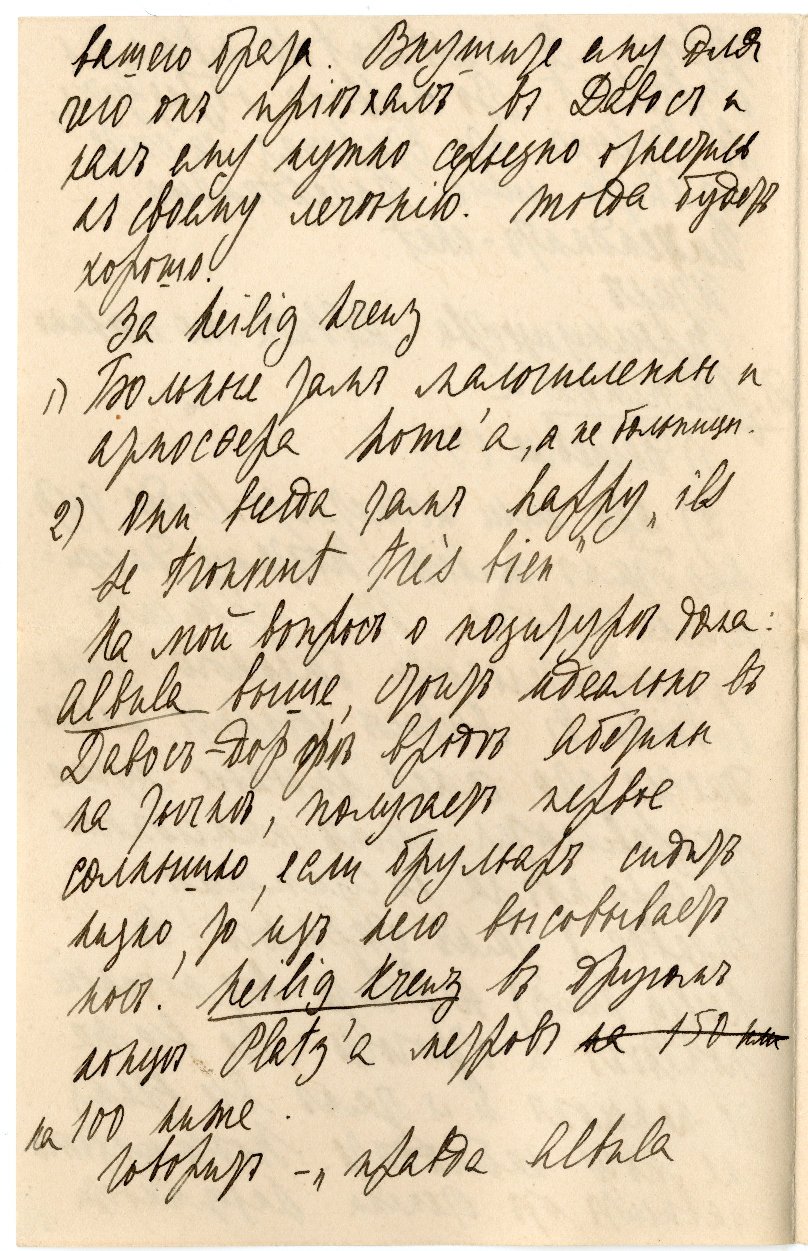 вашего брата. Внушите ему для
чего онъ пріѣхалъ въ Давосъ и
какъ ему нужно серьезно отнестись
къ своему леченію. Тогда будетъ
хорошо.
За Heilig Kreuz
1) Больные тамъ малочисленны и
атмосфера home'а, а не больницы.
2) Они всегда тамъ happy „ils
se trouvent très bien"
На мой вопросъ о позитурѣ дома:
Albula выше, стоитъ идеально въ
Давосъ-Дорфѣ вродѣ Абетины
на точкѣ, получаетъ первое
солнышко, если бруліаръ сидитъ
низко, то изъ него высовываетъ
носъ. Heilig Kreuz въ другомъ
концѣ Platz'а метровъ на 150 или
на 100 ниже.
Говоритъ – „правда Albula